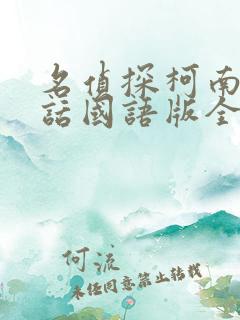 名偵探柯南
話國語版全
何流
未經同意禁止轉載